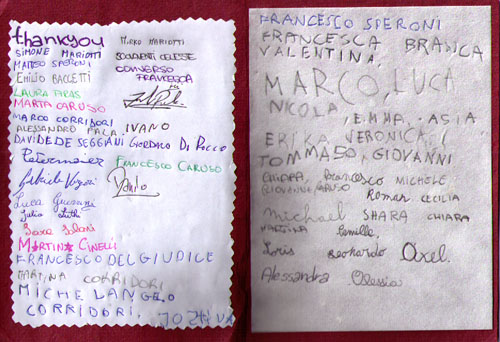 thankyou
SIMONE MARIOTTI
MIRKO MARIOTTI
MATTEO SPERONI
EMILIO BACCETTI
CONVERSO
FRANCESCA
LAURA
MARTA CARUSO
MARCO CORRIDORI
ALESSANDRO PALA IVANO
DAVIDE DE SEGGIANI GIORDANO DI ROCCO
FRANCESCO CARUSO
Danilo
Luca
Julia
Sara
MARTINA CINELLI
FRANCESCO DEL GIUDICE
MARTINA CORRIDORI
MICHELANGELO
CORRIDORI.
FRANCESCO SPERONI
FRANCESCA BRANCA
VALENTINA,
MARCO, LUCA
NICOLA, EMMA, ASIA
ERIKA VERONICA,
TOMMASO, GIOVANNI
CHIARA, francesco MICHELE
GIOVANNI CARUSO Romar CECILIA
michael SHARA CHIARA
MARTINA Camille,
Loris Leonardo Axel.
Alessandra Olessia